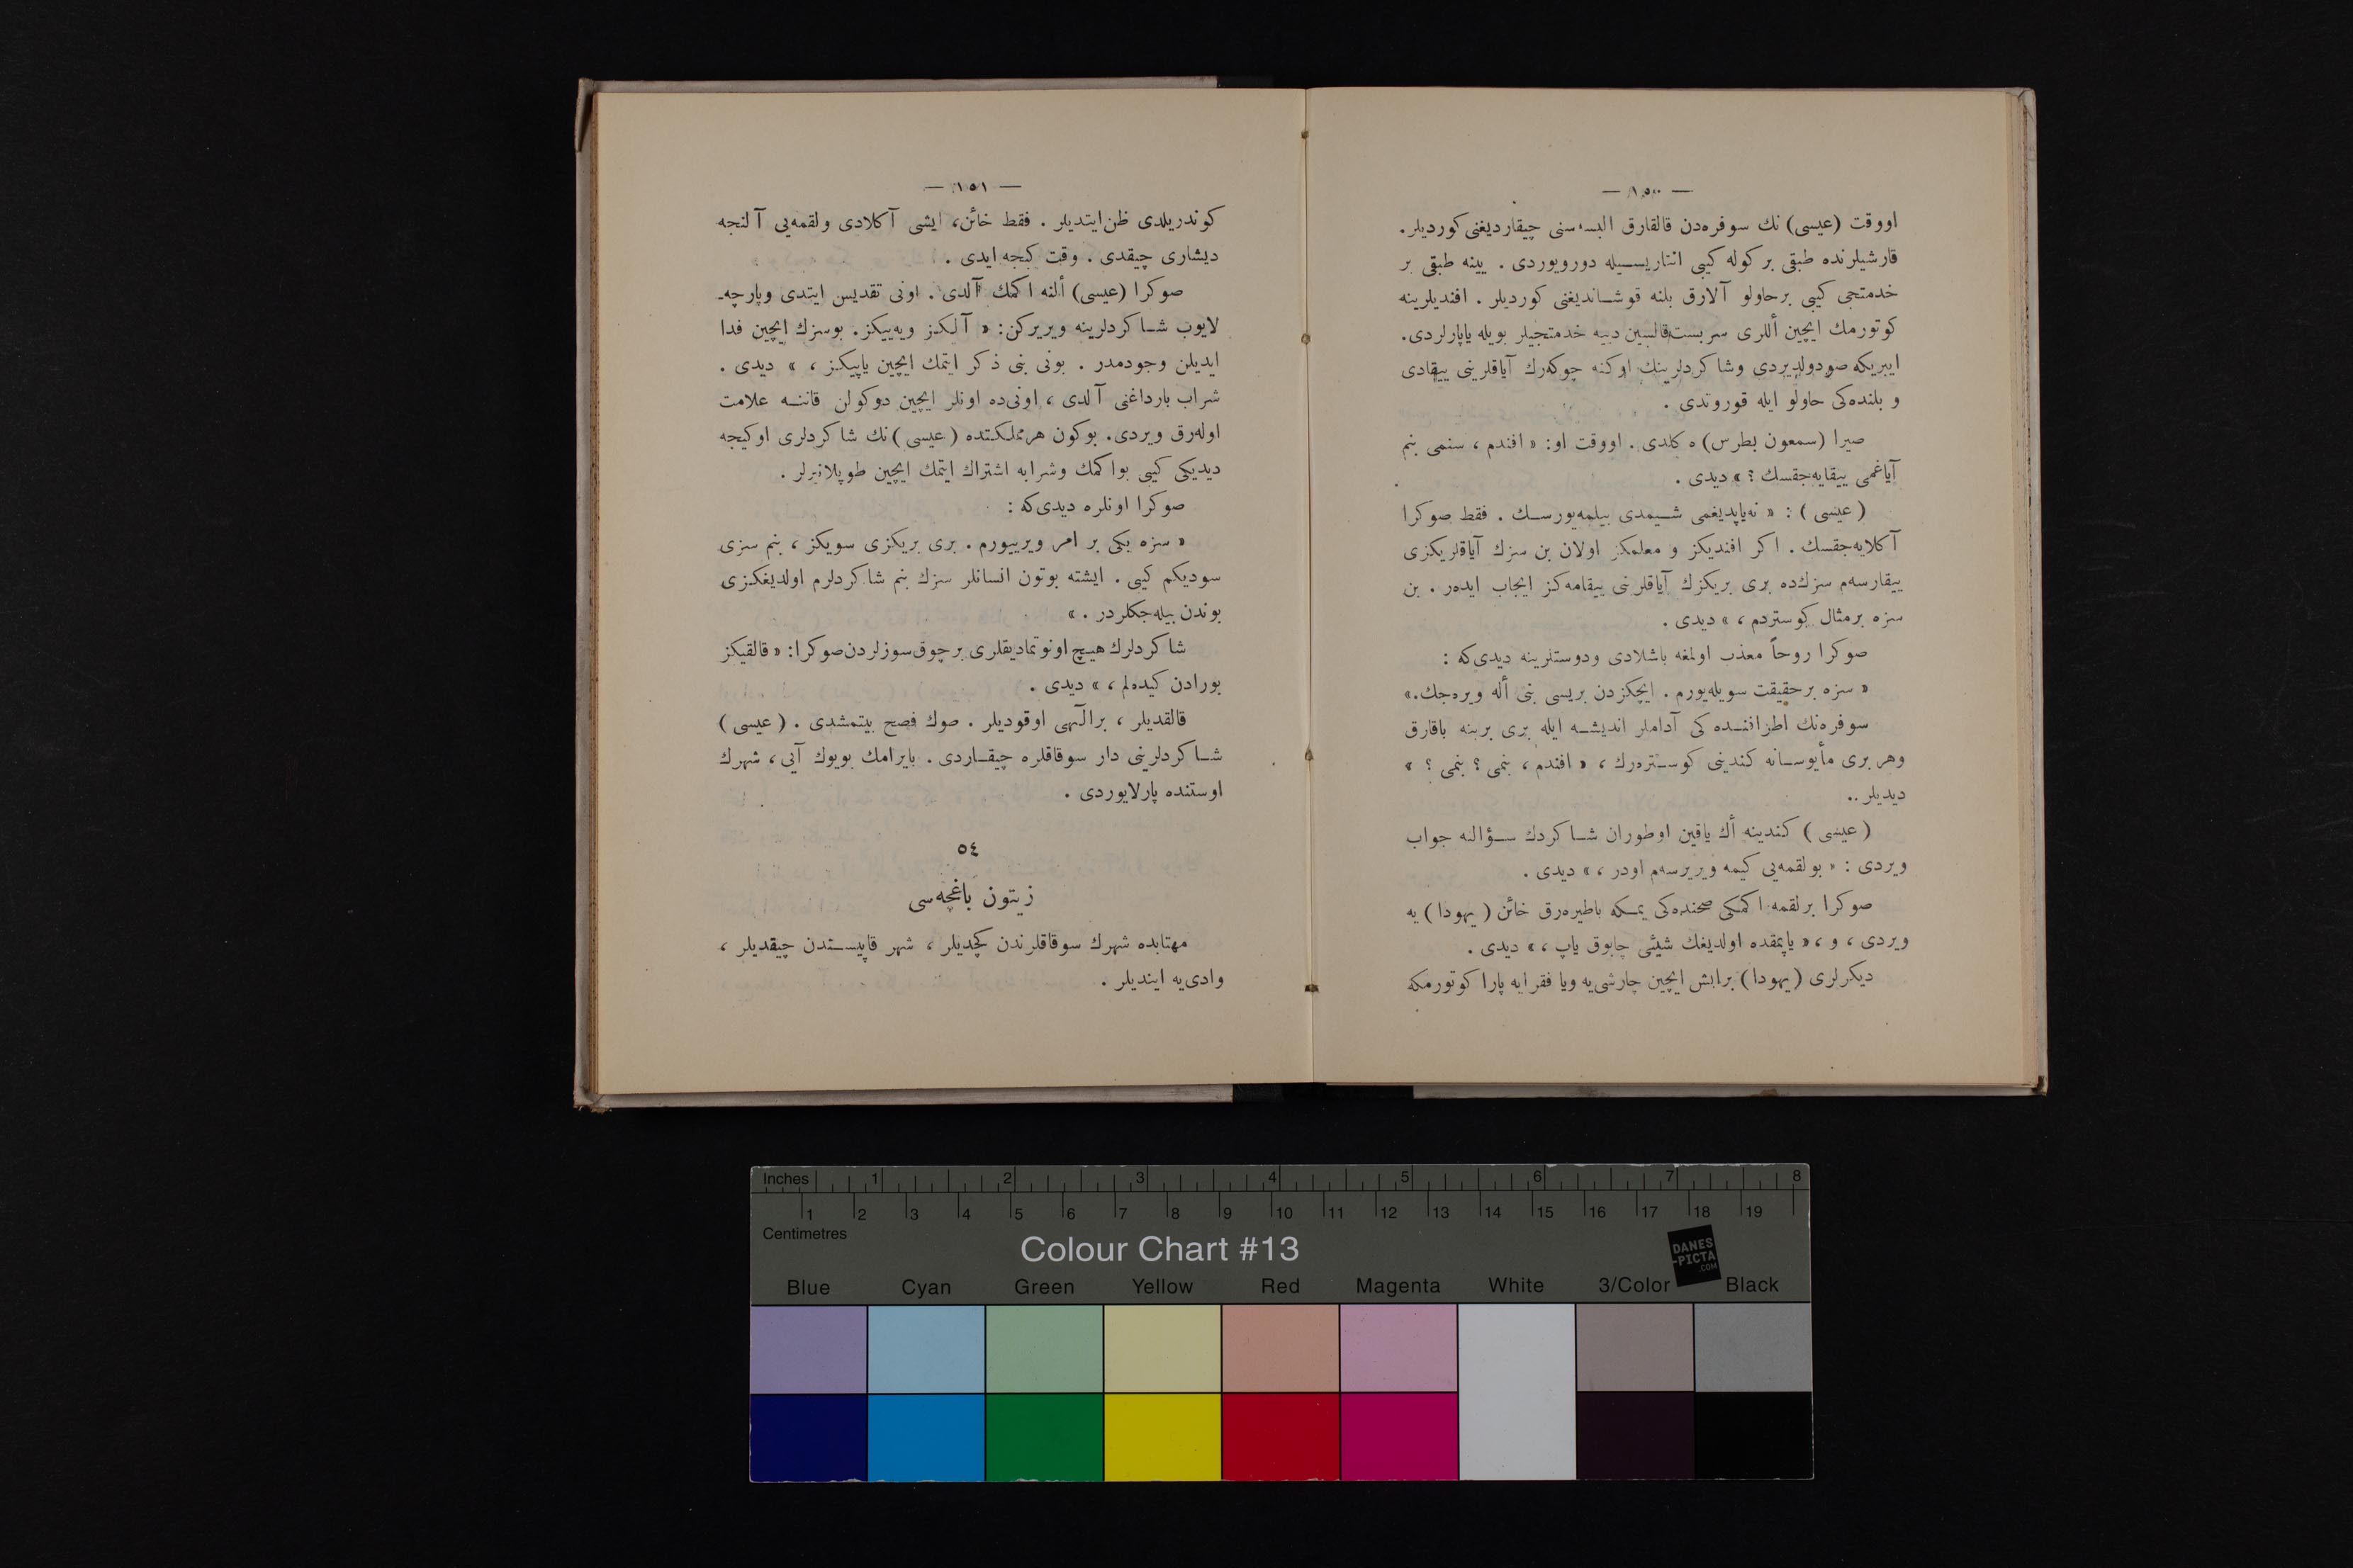 — ١٥٠ —
اووقت (عیسی) نك سوفره‌دن قالقارق البسه‌سنی چیقاردیغنی كوردیلر.
قارشیلرنده طبقی بر كوله كیبی انتاریسیله دورویوردی . یینه طبقی بر
خدمتجی كیبی برحاولو آلارق بلنه قوشاندیغنی كوردیلر . افندیلرینه
كوتورمك ایچین أللری سربست قالسین دییه خدمتجیلر بویله یاپارلردی.
ایبریكه صودولدیردی وشاكردلرینك اوكنه چوكه‌رك آیاقلرینی ییقادی
و بلنده‌كی حاولو ایله قوروتدی .
صیرا (سمعون بطرس) ه كلدی . اووقت او: « افندم ، سنمی بنم
آیاغمی ییقایه‌جقسك ؟ » دیدی .
(عیسی) : « نه‌یاپدیغمی شیمدی بیلمه‌یورسك . فقط صوكرا
آكلایه‌جقسك . اكر افندیكز و معلمكز اولان بن سزك آیاقلریكزی
ییقارسه‌م سزك‌ده بری بریكزك آیاقلرنی ییقامه‌كز ایجاب ایده‌ر . بن
سزه برمثال كوستردم ، » دیدی .
صوكرا روحاً معذب اولمغه باشلادی ودوستلرینه دیدی‌كه :
« سزه برحقیقت سویله‌یورم . ایچكزدن بریسی بنی أله ویره‌جك.»
سوفره‌نك اطرافنده كی آداملر اندیشه ایله بری برینه باقارق
وهر بری مأیوسانه كندینی كوستره‌رك ، « افندم ، بنمی ؟ بنمی ؟ »
دیدیلر ..
(عیسی) كندینه أك یاقین اوطوران شاكردك سؤالنه جواب
ویردی : « بولقمه‌یی كیمه ویریرسه‌م اودر ، » دیدی .
صوكرا برلقمه اكمكی صحنده‌كی یمكه باطیره‌رق خائن (یهودا) یه
ویردی ، و ، « یاپمقده اولدیغك شیئی چابوق یاپ ، » دیدی .
دیكرلری (یهودا) برایش ایچین چارشی‌یه ویا فقرایه پارا كوتورمكه
— ١٥١ —
كوندریلدی ظن ایتدیلر . فقط خائن، ایشی آكلادی ولقمه‌یی آلنجه
دیشاری چیقدی . وقت كیجه ایدی .
صوكرا (عیسی) ألنه اكمك آلدی . اونی تقدیس ایتدی وپارچه‌ـ
لایوب شاكردلرینه ویریركن: « آلكز ویه‌ییكز . بوسزك ایچین فدا
ایدیلن وجودمدر . بونی بنی ذكر ایتمك ایچین یاپیكز ، » دیدی .
شراب بارداغنی آلدی ، اونی‌ده اونلر ایچین دوكولن قاننه علامت
اوله‌رق ویردی. بوكون هرمملكتده (عیسی) نك شاكردلری اوكیجه
دیدیكی كیبی بواكمك وشرابه اشتراك ایتمك ایچین طوپلانیرلر .
صوكرا اونلره دیدی‌كه :
« سزه یكی بر امر ویرییورم . بری بریكزی سویكز ، بنم سزی
سودیكم كیبی . ایشته بوتون انسانلر سزك بنم شاكردلرم اولدیغكزی
بوندن بیله‌جكلردر . »
شاكردلرك هیچ اونوتمادیقلری برچوق سوزلردن صوكرا: « قالقیكز
بورادن كیده‌لم ، » دیدی .
قالقدیلر ، برالٓهی اوقودیلر . صوك فصح بیتمشدی . (عیسی)
شاكردلرینی دار سوقاقلره چیقاردی . بایرامك بویوك آیی ، شهرك
اوستنده پارلایوردی .
٥٤
زیتون باغچه‌سی
مهتابده شهرك سوقاقلرندن كچدیلر ، شهر قاپیسندن چیقدیلر ،
وادی‌یه ایندیلر .
Inches 1 2 3 4 5 6 7 8
1 2 3 4 5 6 7 8 9 10 11 12 13 14 15 16 17 18 19
Centimetres
Colour Chart #13
DANES
-PICTA
.COM
Blue Cyan Green Yellow Red Magenta White 3/Color Black